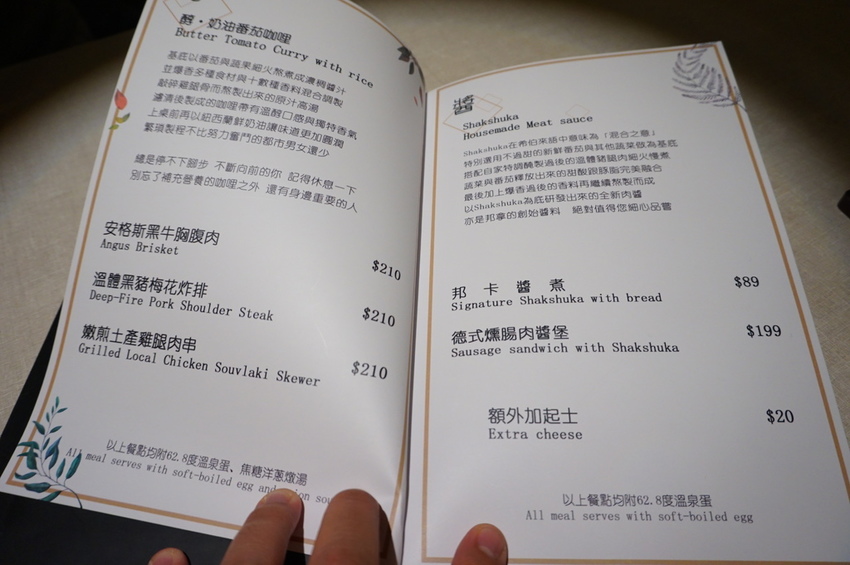 醇·奶油番茄咖哩
Butter Tomato Curry with rice
基底以番茄與蔬果細火熬煮成濃稠醬汁
並爆香多種食材與十數種香料混合調製
敲碎雞骨而熬製出來的原汁高湯
濾清後製成的咖哩帶有溫醇口感與獨特香氣
上桌前再以紐西蘭鮮奶油讓味道更加圓潤
繁瑣製程不比努力奮鬥的都市男女還少
總是停不下腳步 不斷向前的你 記得休息一下
別忘了補充營養的咖哩之外 還有身邊重要的人
安格斯黑牛胸腹肉
Angus Brisket
$210
溫體黑豬梅花炸排
Deep-Fire Pork Shoulder Steak
$210
嫩煎土產雞腿肉串
Grilled Local Chicken Souvlaki Skewer
$210
以上餐點均附62.8度溫泉蛋、焦糖洋蔥燉湯
All meal serves with soft-boiled egg and
醬
Shakshuka
Housemade Meat sauce
Shakshuka在希伯來語中意味為「混合之意」
特別選用不過甜的新鮮番茄與其他蔬菜做為基底
搭配自家特調醃製過後的溫體豬腿肉細火慢煮
蔬菜與番茄釋放出來的甜酸跟豚脂完美融合
最後加上爆香過後的香料再繼續熬製而成
以Shakshuka為底研發出來的全新肉醬
亦是邦拿的創始醬料 絕對值得您細心品嘗
邦 卡 醬 煮
$89
Signature Shakshuka with bread
德式燻腸肉醬堡
$199
Sausage sandwich with Shakshuka
額外加起士
$20
Extra cheese
以上餐點均附62.8度溫泉蛋
All meal serves with soft-boiled egg